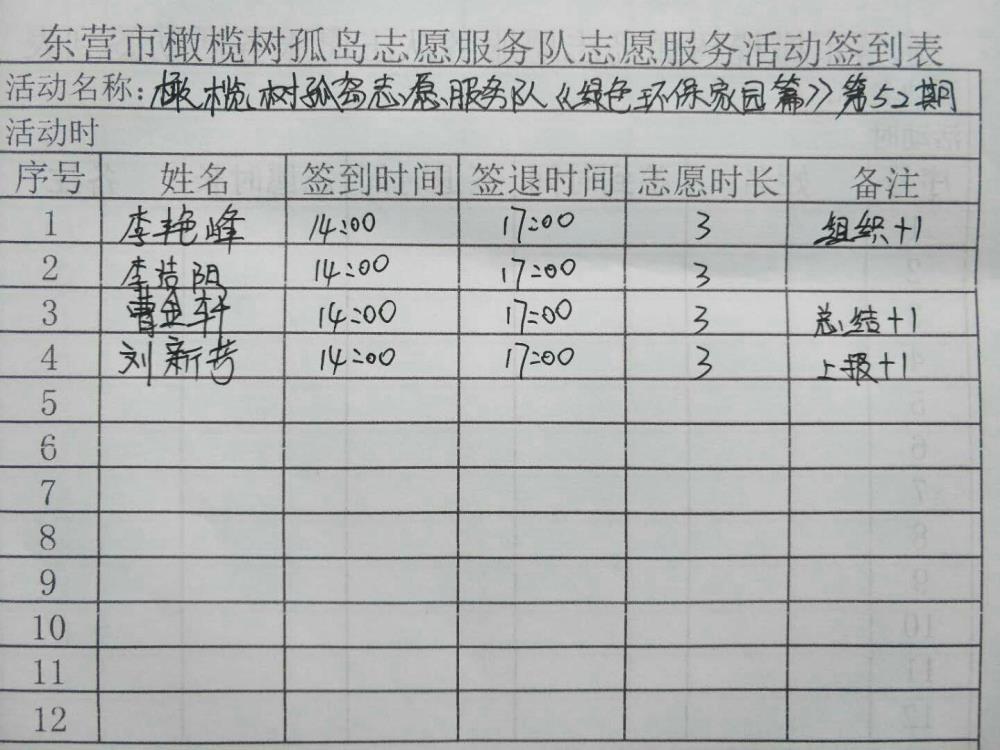 东营市橄榄树孤岛志愿服务队志愿服务活动签到表
活动名称:橄榄树孤岛志愿服务队《绿色环保家园篇》第52期
活动时
序号 姓名 签到时间 签退时间 志愿时长 备注
1 李艳峰 14:00 17:00 3 组织+1
2 李洁阳 14:00 17:00 3
3 曹金轩 14:00 17:00 3 总结+1
4 刘新芳 14:00 17:00 3 上报+1
5
6
7
8
9
10
11
12